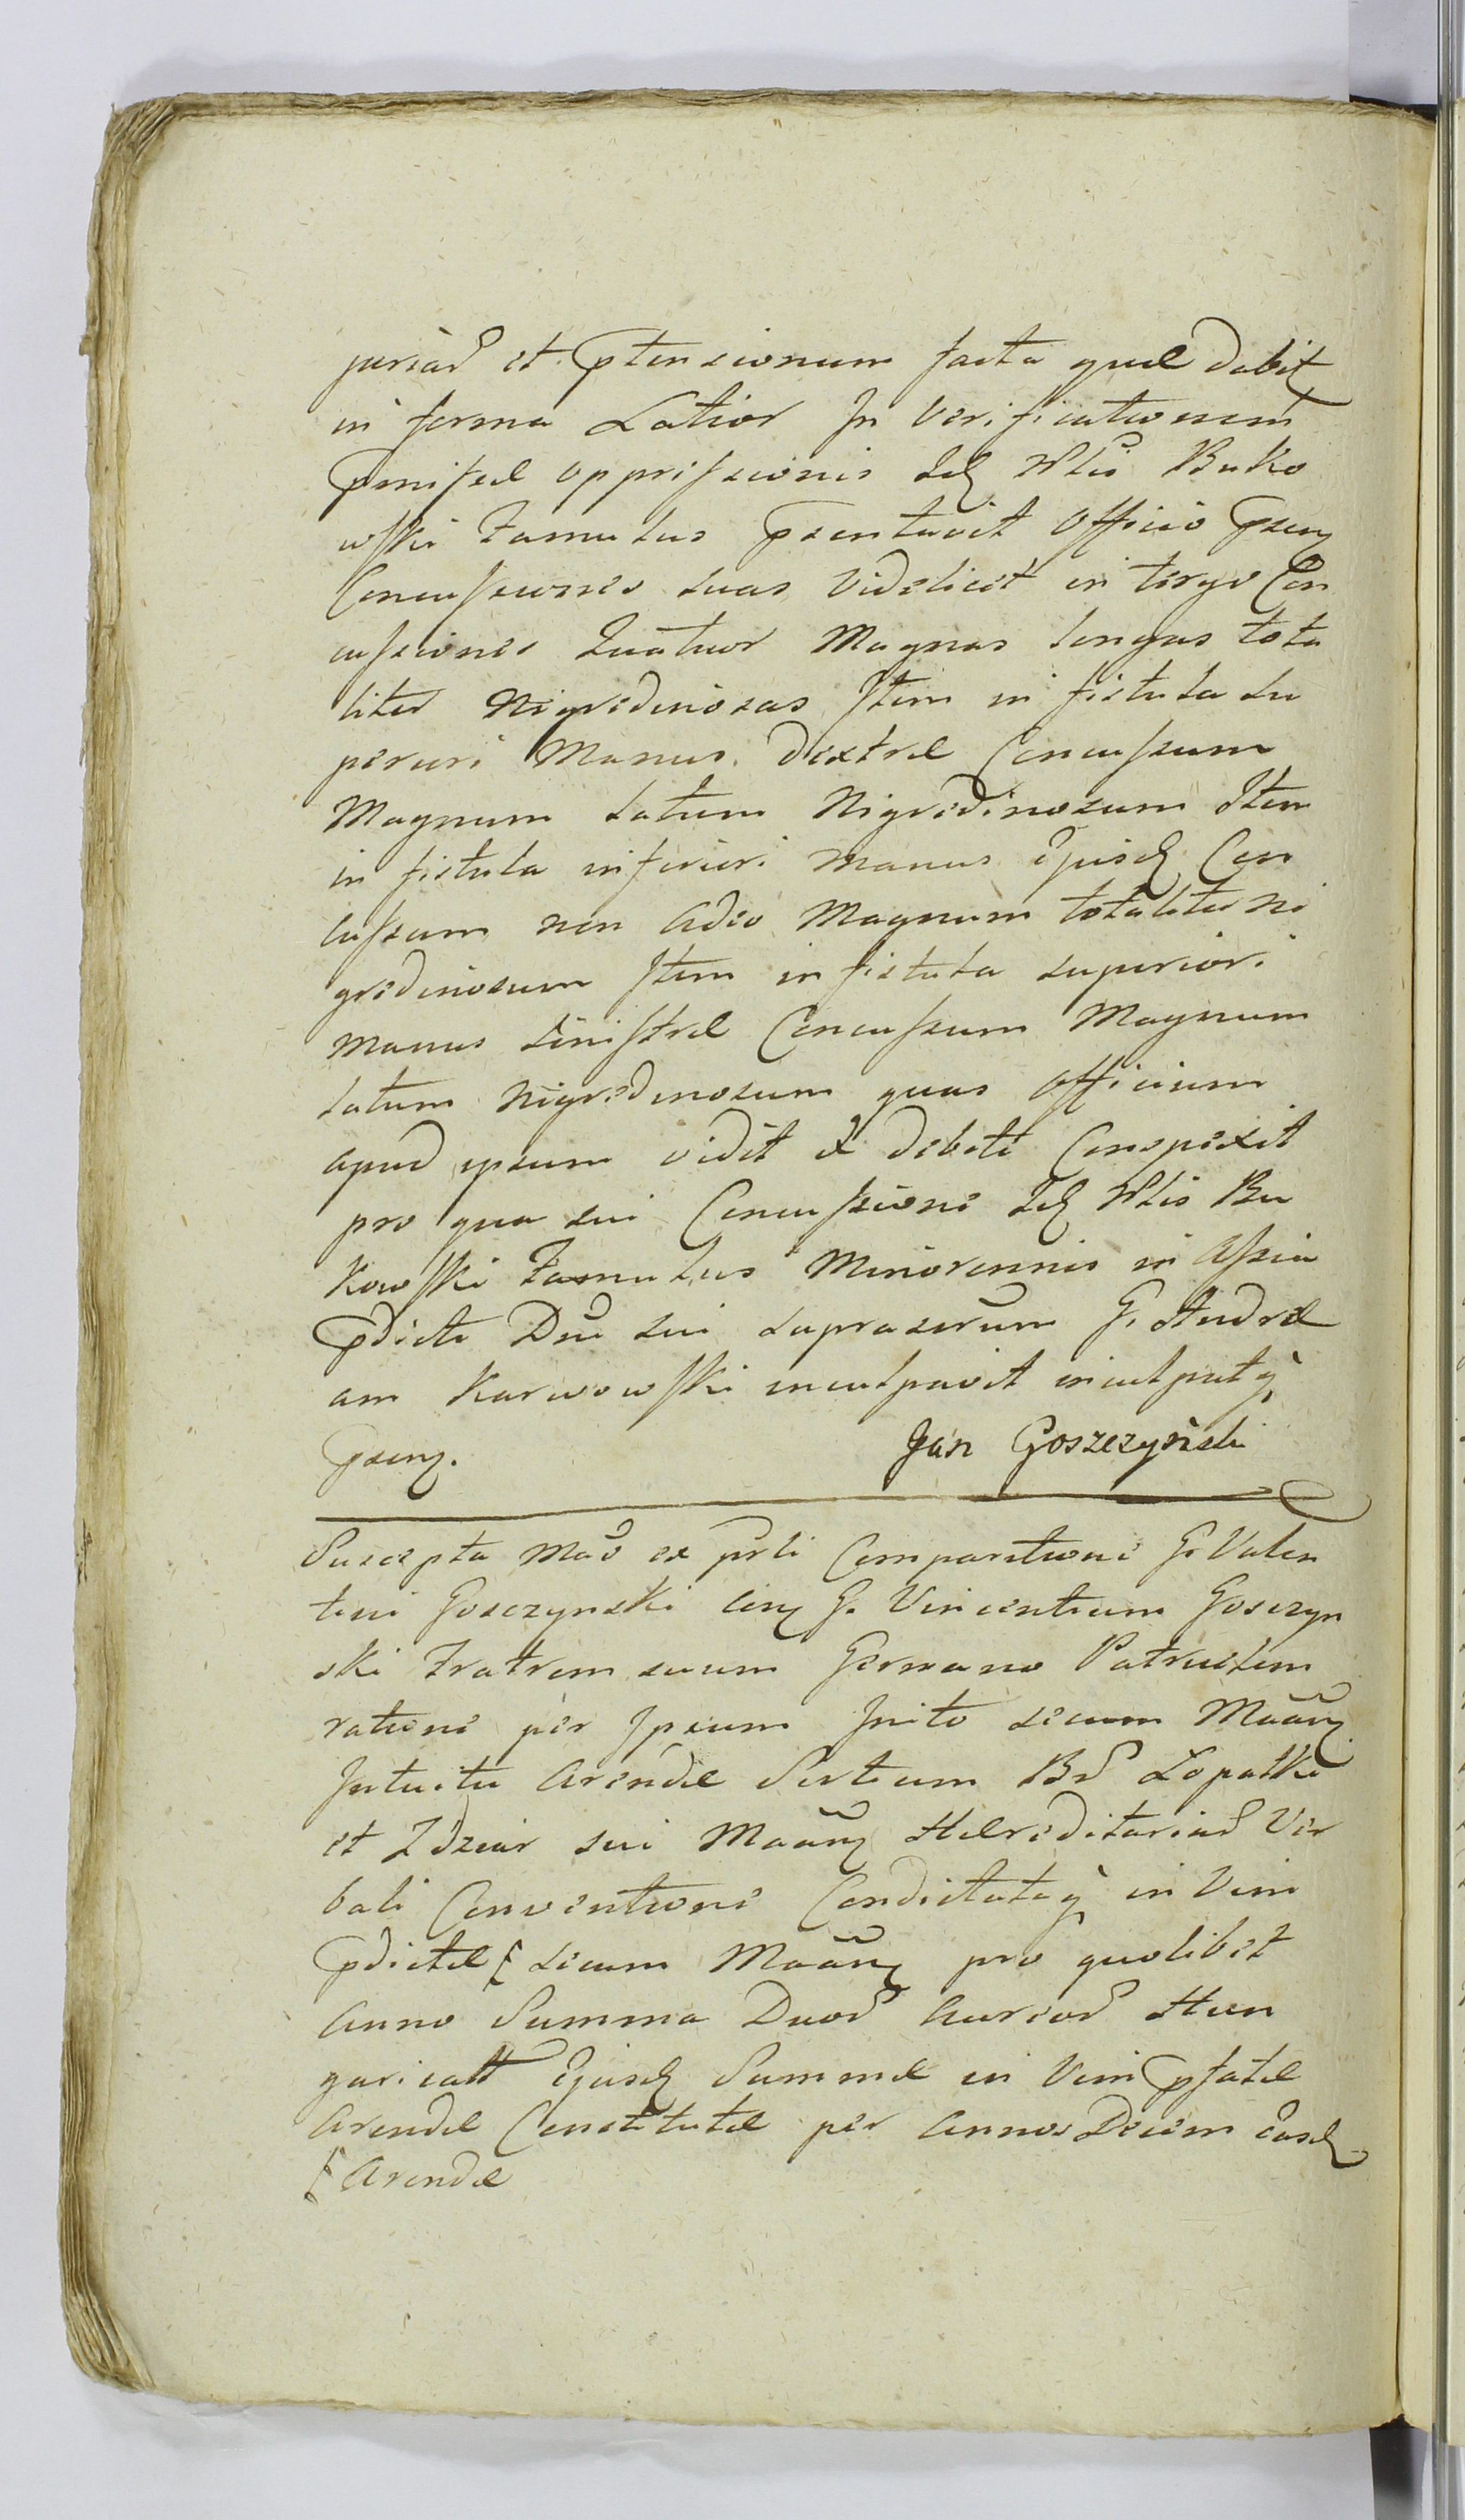 juriar et Ptensionum facta quæ dabit
in forma Latior In Verificationem
Pmissæ oppressionis Idem Nblis Buko
wski Famulus Psentavit Officio Psenti
Concussiones suas videlicet in tergo Con
cussiones Quatuor Magnas longas tota
liter Nigredinosas Item in fistula su
periori Manus dextræ Concussum
Magnum latum Nigredinosum Item
in fistula inferiori Manus ejusd Con
cussum non adeo Magnum totaliter Ni
gredinosum Item in fistula superiori
manus sinistræ Concussum Magnum
latum Nigredinosum quas Officium
apud ipsum vidit et debite Conspexit
pro qua sui Concussione Idem Nblis Bu
kowski Famulus Minorennis in Assia
Pdicti Dni sui suprascrum G. Andræ
am Karwowski inculpavit inculpatq
Psenti. Jan Goszczyński
Suscepta Mãv ex prli Comparitione G. Valen
tini Goszczynski Cive G. Vincentium Goszczyn
ski Fratrem suum Germano Patruelem
ratione per Ipsum Inito secum Mããnte
Intuitu Arendæ Sortium Br Lopatki
et Zdziar sui Mããntis Hæreditariar Ver
bali Conventione Condictataq in Vim
Pdictæ [ secum Mããnte pro quolibet
Anno Summa Duor Aureor Hun
garicall Ejusd Summæ in Vim Pfatæ
Arendæ Constitutæ per Annos Decem Easd
[ Arendæ